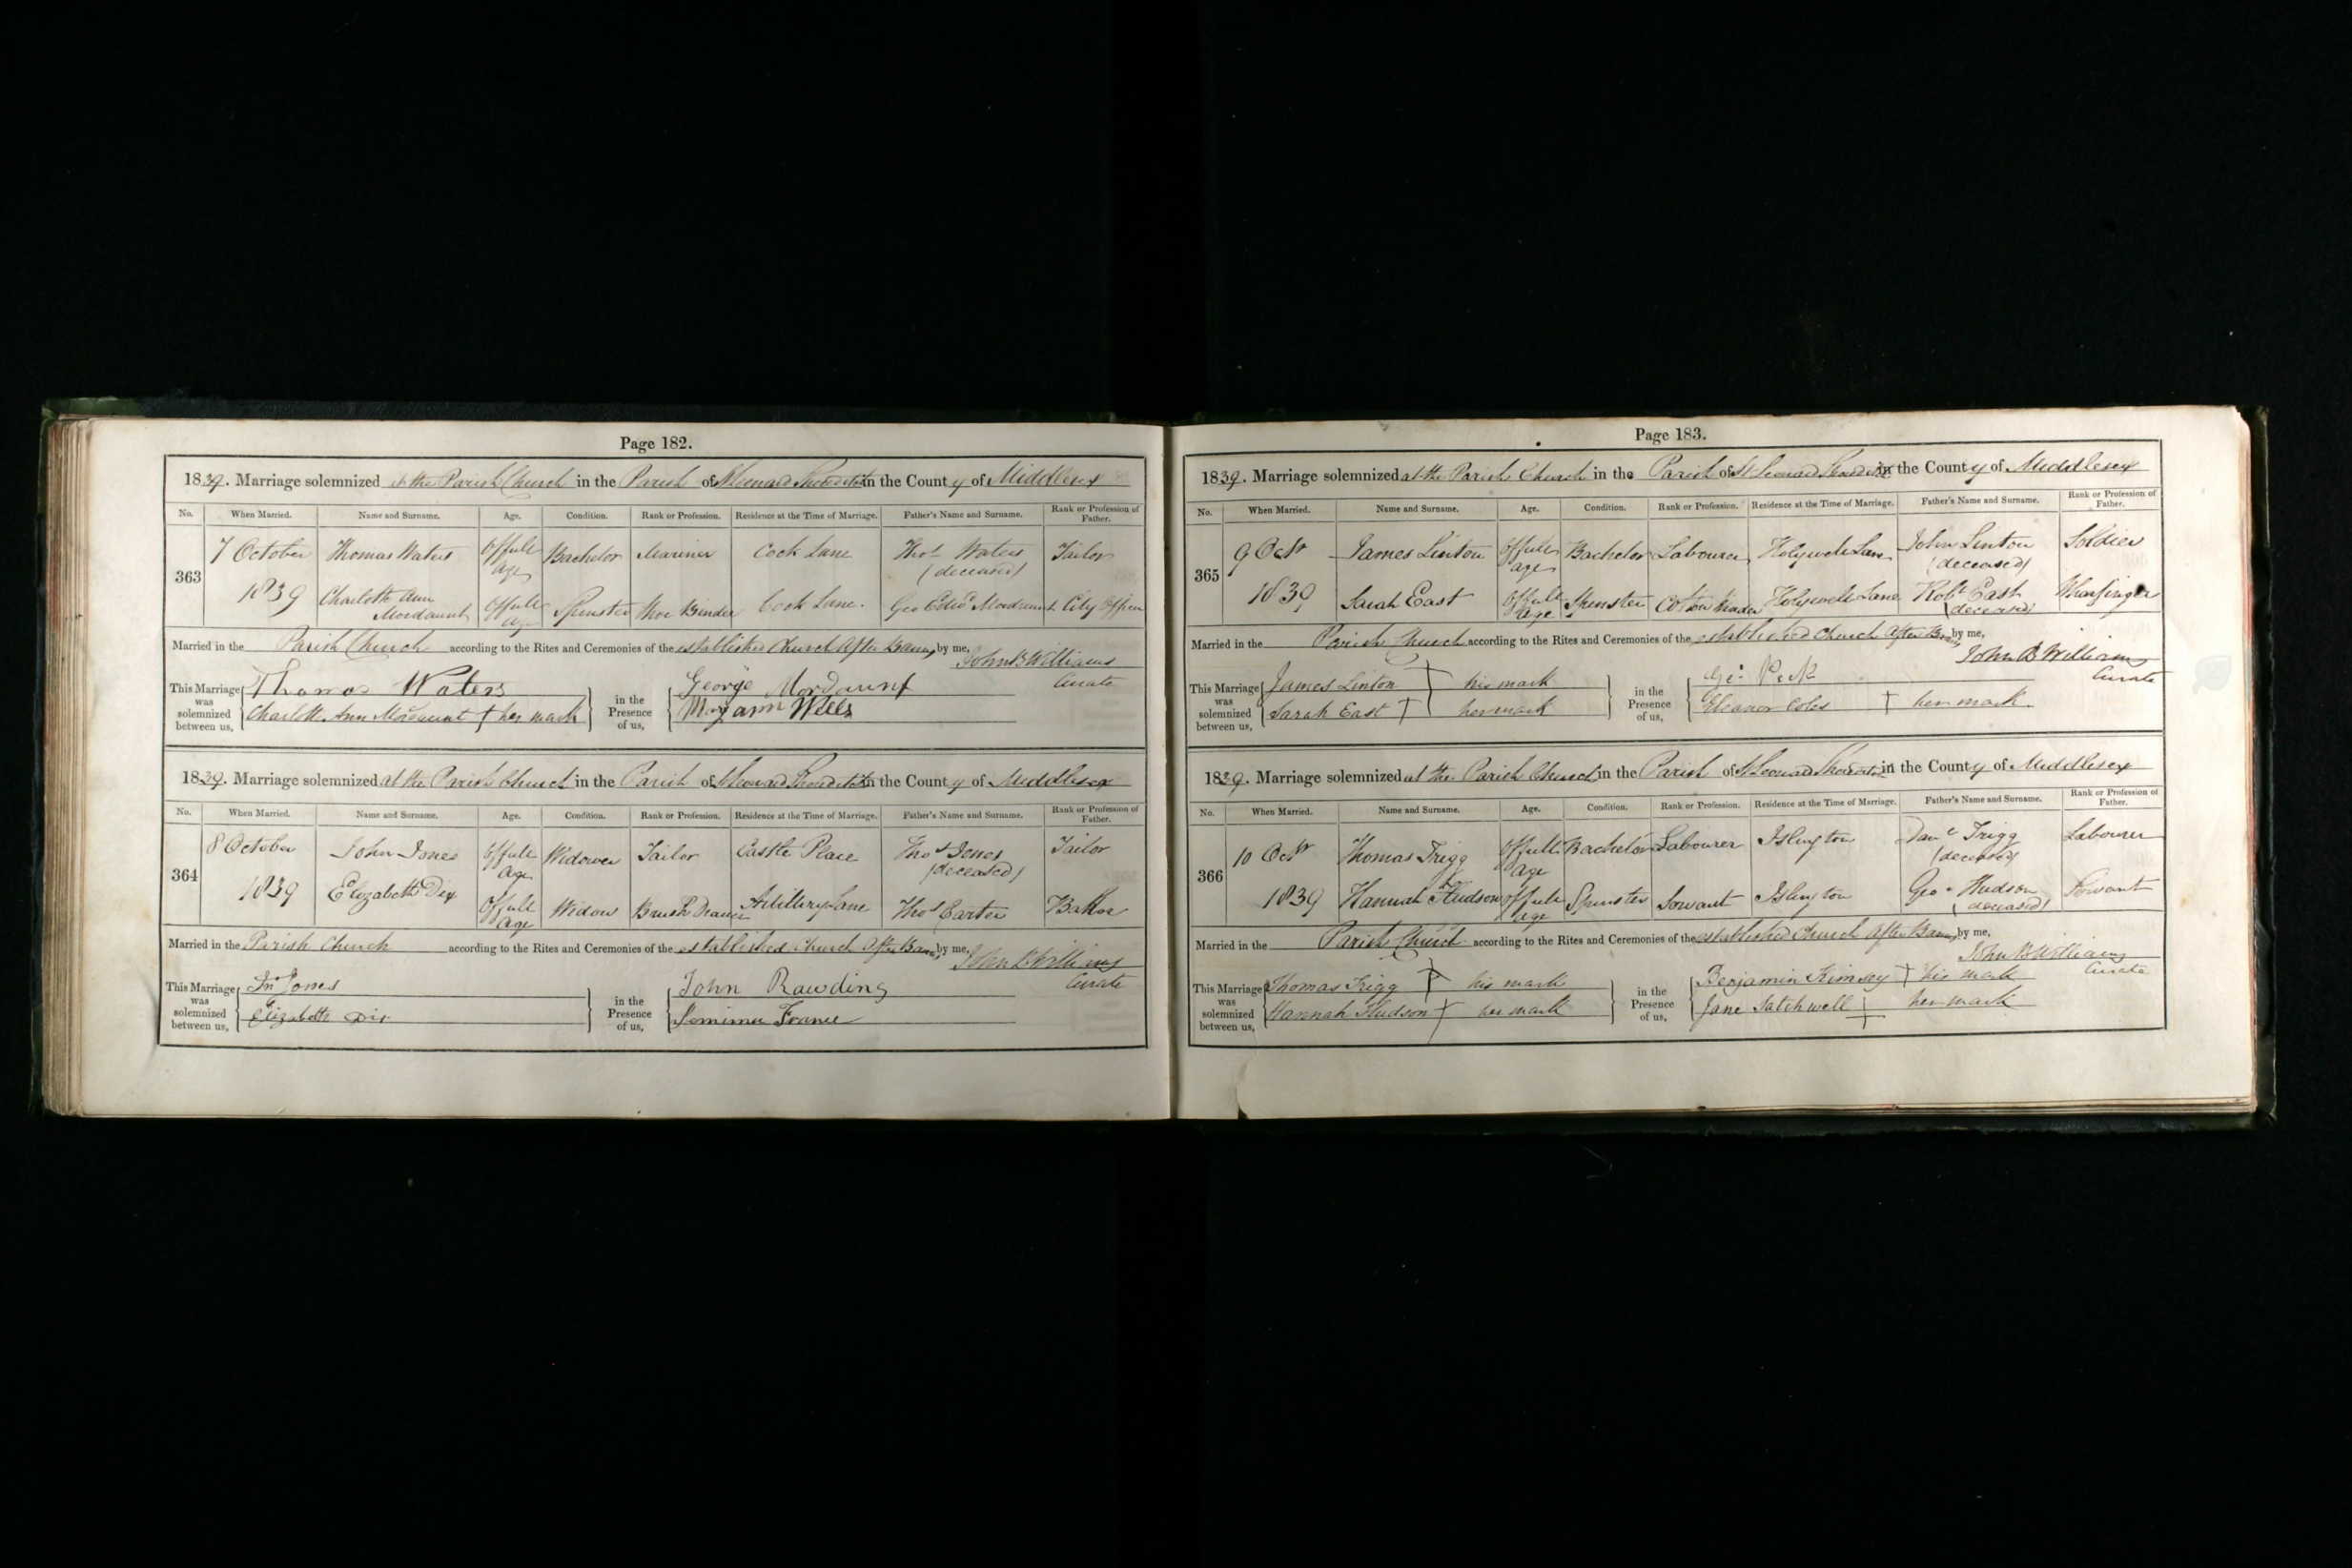 Page 182.
1839. Marriage solemnized at the Parish Church in the Parish of St Leonard Shoreditch in the County of Middlesex
No. When Married. Name and Surname. Age. Condition. Rank or Profession. Residence at the Time of Marriage. Father's Name and Surname. Rank or Profession of Father.
363 7 October Thomas Waters Of full age Bachelor Mariner Cock Lane Thos Waters (deceased) Tailor
1839 Charlotte Ann Mordaunt Of full age Spinster Shoe Binder Cook Lane. Geo Edwd Mordaunt City Officer
Married in the Parish Church according to the Rites and Ceremonies of the established Church After Banns by me, John B Williams Curate
This Marriage was solemnized between us, Thomas Waters
Charlotte Ann Mordaunt + her mark
in the Presence of us, George Mordaunt
Mary ann Wells
1839. Marriage solemnized at the Parish Church in the Parish of St Leonard Shoreditch in the County of Middlesex
No. When Married. Name and Surname. Age. Condition. Rank or Profession. Residence at the Time of Marriage. Father's Name and Surname. Rank or Profession of Father.
364 8 October John Jones Of full Age Widower Tailor Castle Place Thos Jones (deceased) Tailor
1839 Elizabeth Dix Of full Age Widow Brush Drawer Artillery Lane Thos Carter Baker
Married in the Parish Church according to the Rites and Ceremonies of the established Church After Banns by me, John B Williams Curate
This Marriage was solemnized between us, Jn Jones
Elizabeth Dix
in the Presence of us, John Rawding
Jemima France
Page 183.
1839. Marriage solemnized at the Parish Church in the Parish of St Leonard Shoreditch in the County of Middlesex
No. When Married. Name and Surname. Age. Condition. Rank or Profession. Residence at the Time of Marriage. Father's Name and Surname. Rank or Profession of Father.
365 9 Octr James Linton Of full age Bachelor Labourer Holywell Lane John Linton (deceased) Soldier
1839 Sarah East Of full Age Spinster Cotton Winder Holywell Lane Robt East (deceased) Wharfinger
Married in the Parish Church according to the Rites and Ceremonies of the established Church After Banns by me, John B Williams Curate
This Marriage was solemnized between us, James Linton + his mark
Sarah East + her mark
in the Presence of us, Geo: Peck
Eleanor Coles + her mark.
1839. Marriage solemnized at the Parish Church in the Parish of St Leonard Shoreditch in the County of Middlesex
No. When Married. Name and Surname. Age. Condition. Rank or Profession. Residence at the Time of Marriage. Father's Name and Surname. Rank or Profession of Father.
366 10 Octr Thomas Trigg Of full Age Bachelor Labourer Islington Danl Trigg (deceased) Labourer
1839 Hannah Hudson Of full Age Spinster Servant Islington Geo Hudson (deceased) Servant
Married in the Parish Church according to the Rites and Ceremonies of the established Church After Banns by me, John B Williams Curate
This Marriage was solemnized between us, Thomas Trigg + his mark
Hannah Hudson + her mark
in the Presence of us, Benjamin Kimsey + his mark
Jane Satchwell + her mark